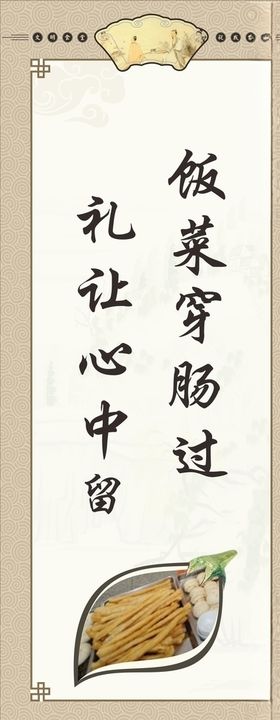 文明食堂
饭菜穿肠过
礼让心中留